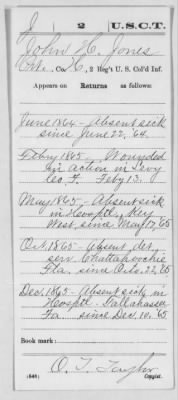 J 2 U.S.C.T.
John H. Jones
Pvt., Co. H, 2 Reg't U. S. Col'd Inf.
Appears on Returns as follows:
June 1864 - Absent sick
since June 22, '64.
Feb'y 1865. Wounded
in action in Levy
Co. F. Feb'y 13.
May 1865 - Absent sick
in Hospt'l, Key
West, since May 17, '65
Oct. 1865 - Absent det.
serv. Chattahoochie
Fla. since Oct. 22, '65
Dec. 1865 - Absent sick in
Hospt'l Tallahassee
Fa. since Dec. 10, '65
Book mark:
O. T. Taylor
(546) Copyist.